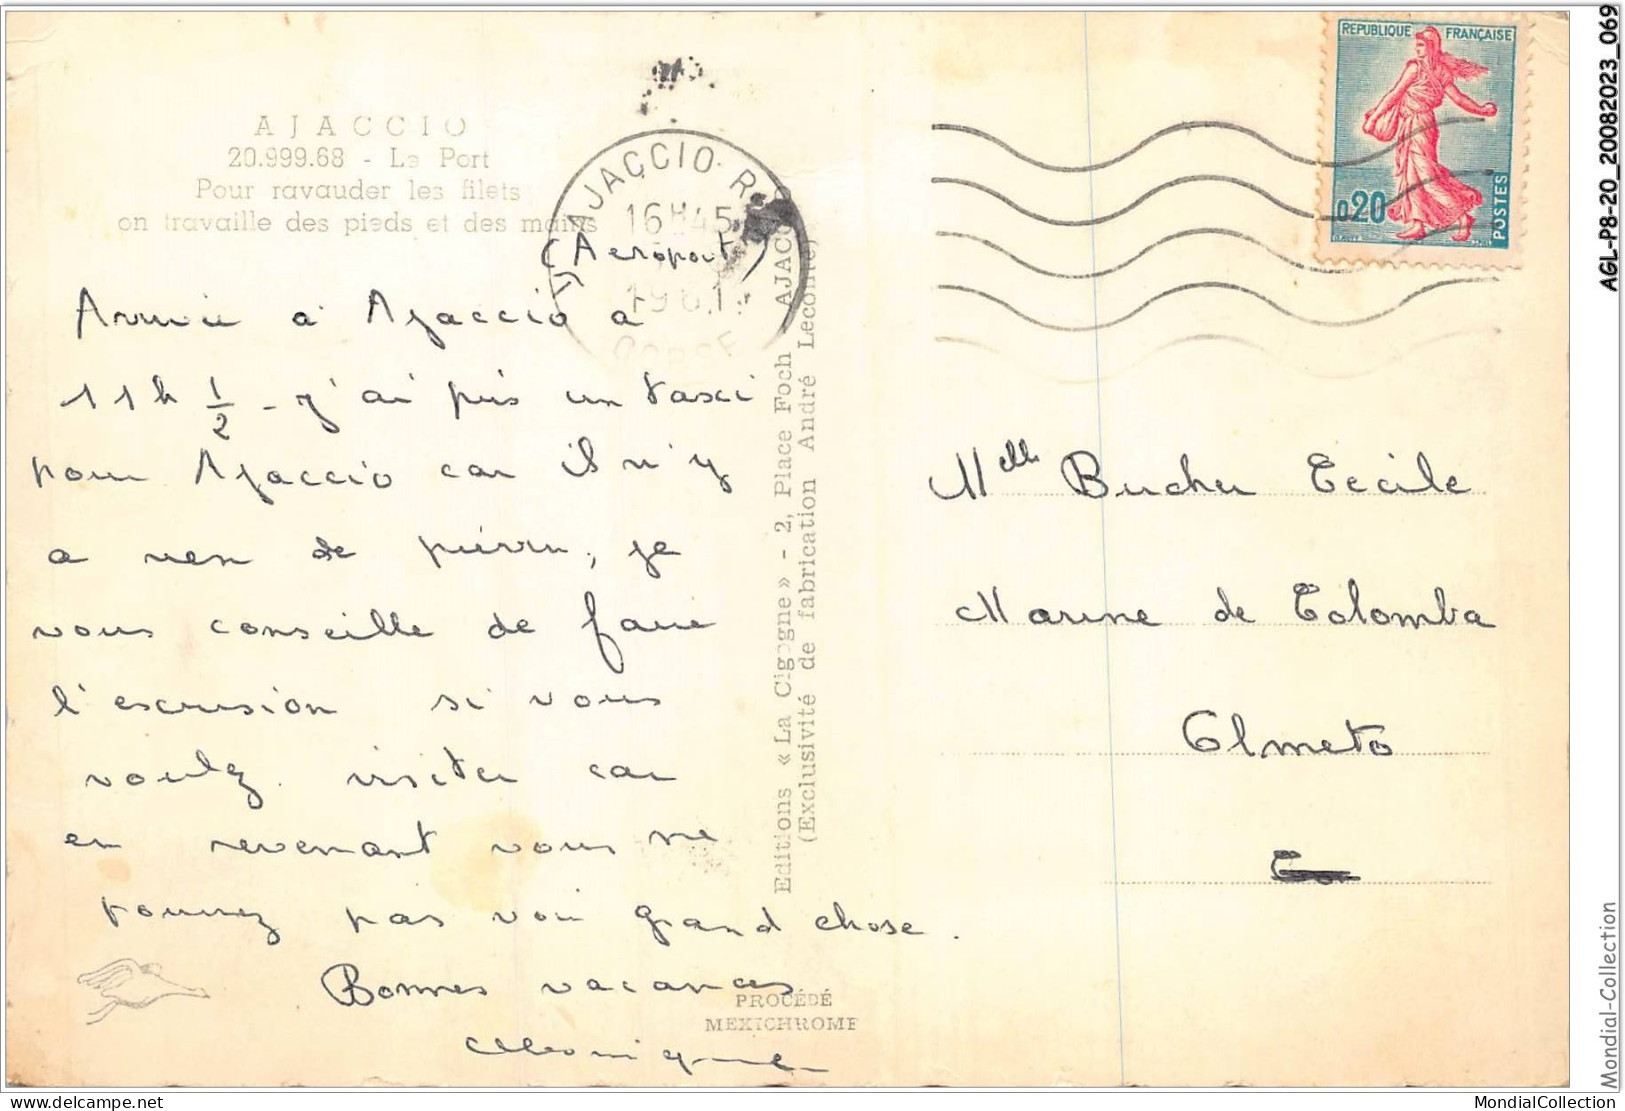 AJACCIO
20.999.68 - Le Port
Pour ravauder les filets
on travaille des pieds et des mains
AJACCIO R.P.
16H45
CORSE
REPUBLIQUE FRANÇAISE
0,20
POSTES
(Aeroport)
Arrivée à Ajaccio a
11h 1/2 - j'ai pris un taxi
pour Ajaccio car il n'y
a rien de prévu, je
vous conseille de faire
l'escursion si vous
voulez visiter car
en revenant vous ne
pourrez pas voir grand chose.
Bonnes vacances
Monique
Editions «La Cigogne» - 2, Place Foch AJACCIO
(Exclusivité de fabrication André Leconte)
PROCÉDÉ
MEXICHROME
Melle Bucher Cecile
Marine de Colomba
Olmeto
AGL-P8-20_20082023_069
Mondial-Collection
delcampe.net
MondialCollection